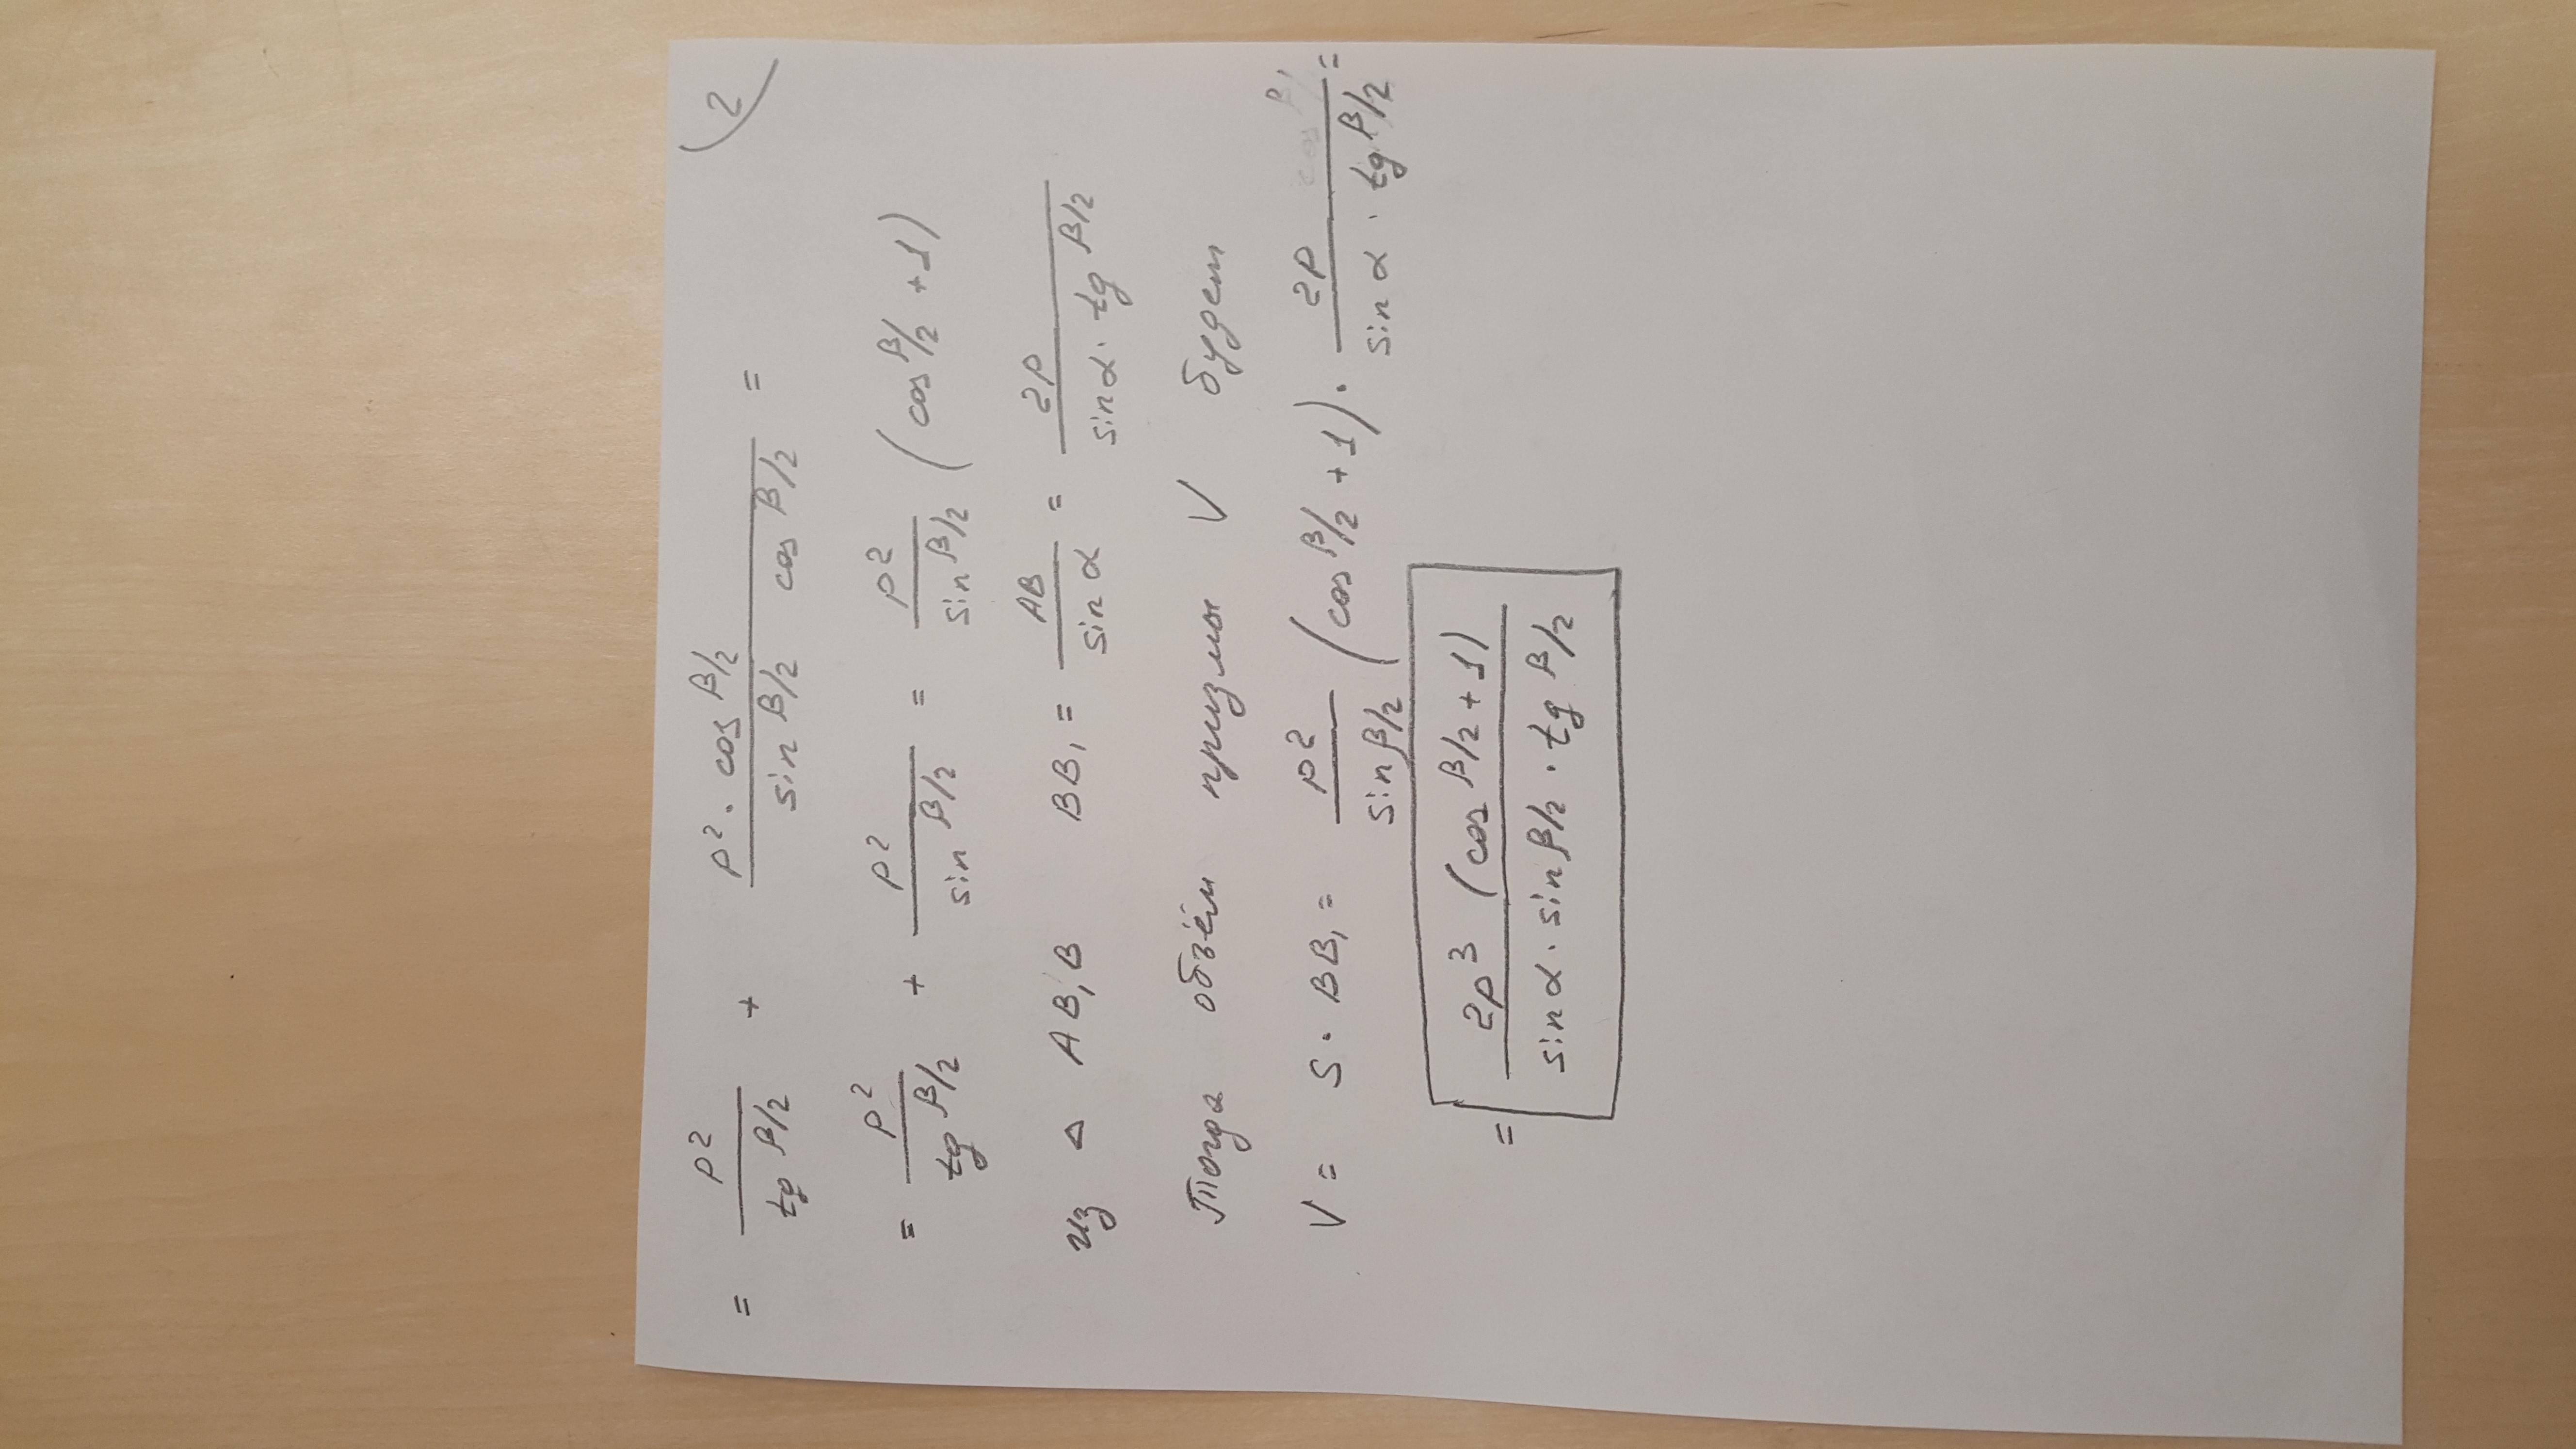 2)
= P²/tg β/2 + P² · cos β/2 / sin β/2 cos β/2 =
= P²/tg β/2 + P²/sin β/2 = P²/sin β/2 (cos β/2 + 1)
из △ AB₁B BB₁ = AB/sin α = 2P/sin α · tg β/2
Тогда объём призмы V будет
V = S · BB₁ = P²/sin β/2 (cos β/2 + 1) · 2P/sin α · tg β/2 =
= 2P³ (cos β/2 + 1)/sin α · sin β/2 · tg β/2